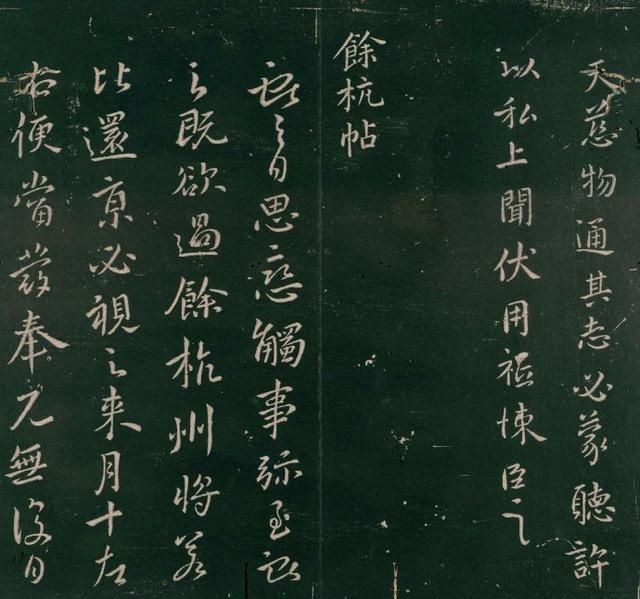 天慈物通其志必蒙聽許
以私上聞伏用祗悚臣之
餘杭帖
獻之白思戀觸事彌至獻
之既欲過餘杭州將若
比還京必視之來月十左
右便當發奉見無復日